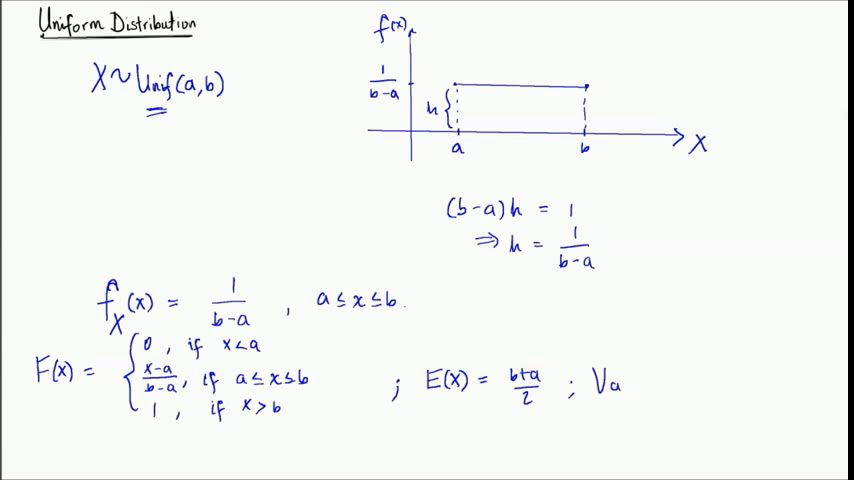 Uniform Distribution
X ~ Unif(a,b)
f(x)
1/(b-a)
h {
a b X
(b-a)h = 1
⇒ h = 1/(b-a)
f_X(x) = 1/(b-a) , a ≤ x ≤ b.
F(x) = { 0 , if x < a
(x-a)/(b-a) , if a ≤ x ≤ b
1 , if x > b
; E(X) = (b+a)/2 ; Va